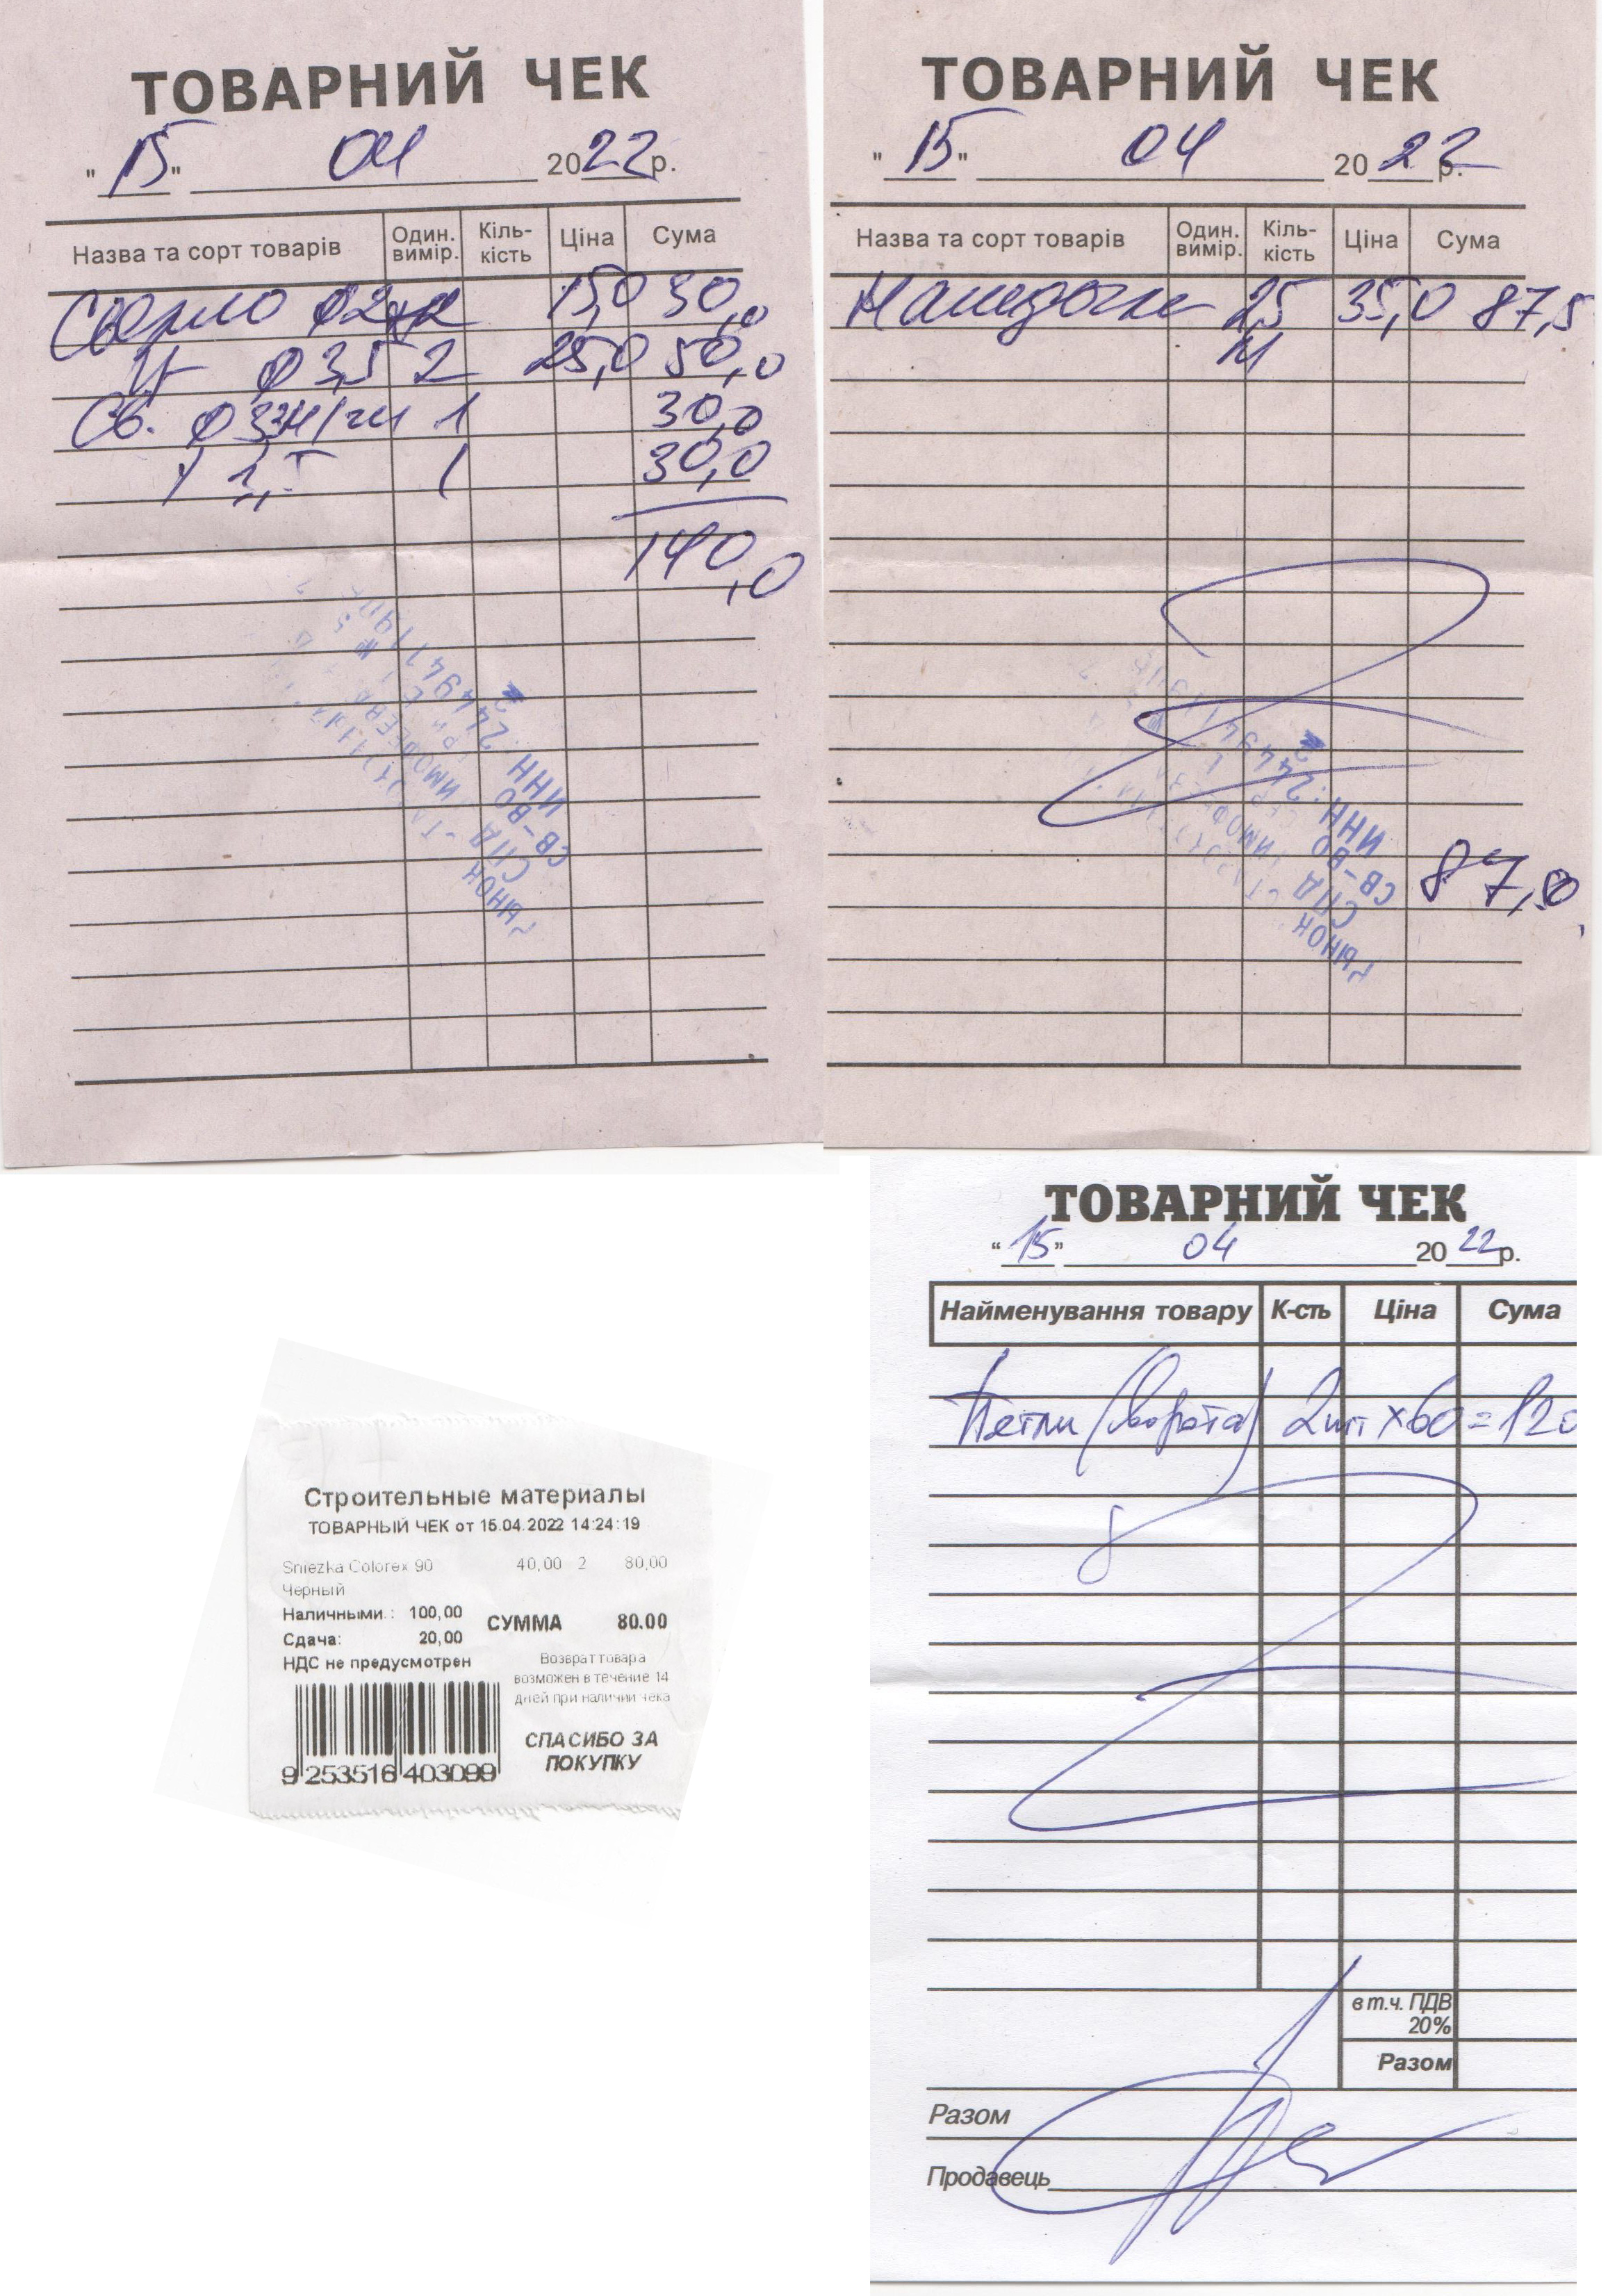 ТОВАРНИЙ ЧЕК
"15" 04 2022р.
Назва та сорт товарів Один. вимір. Кіль-кість Ціна Сума
Сверло Ф2 2 15,0 30,0
Ф3,5 2 25,0 50,0
Св. Ф3 1 30,0
1 30,0
140,0
РЫНОК
СПД
СВ-ВО
ИНН: 244941
ТОВАРНИЙ ЧЕК
"15" 04 2022р.
Назва та сорт товарів Один. вимір. Кіль-кість Ціна Сума
2,5 35,0 87,5
м
87,50
РЫНОК
СПД
СВ-ВО
ИНН: 24494
Строительные материалы
ТОВАРНЫЙ ЧЕК от 15.04.2022 14:24:19
Sniezka Colorex 90 40,00 2 80,00
Черный
Наличными.: 100,00
Сдача: 20,00
СУММА 80.00
НДС не предусмотрен
Возврат товара
возможен в течение 14
дней при наличии чека
СПАСИБО ЗА
ПОКУПКУ
9 253516 403099
ТОВАРНИЙ ЧЕК
"15" 04 2022р.
Найменування товару К-сть Ціна Сума
Петли (Ворота) 2шт x60=120
в т.ч. ПДВ
20%
Разом
Разом
Продавець